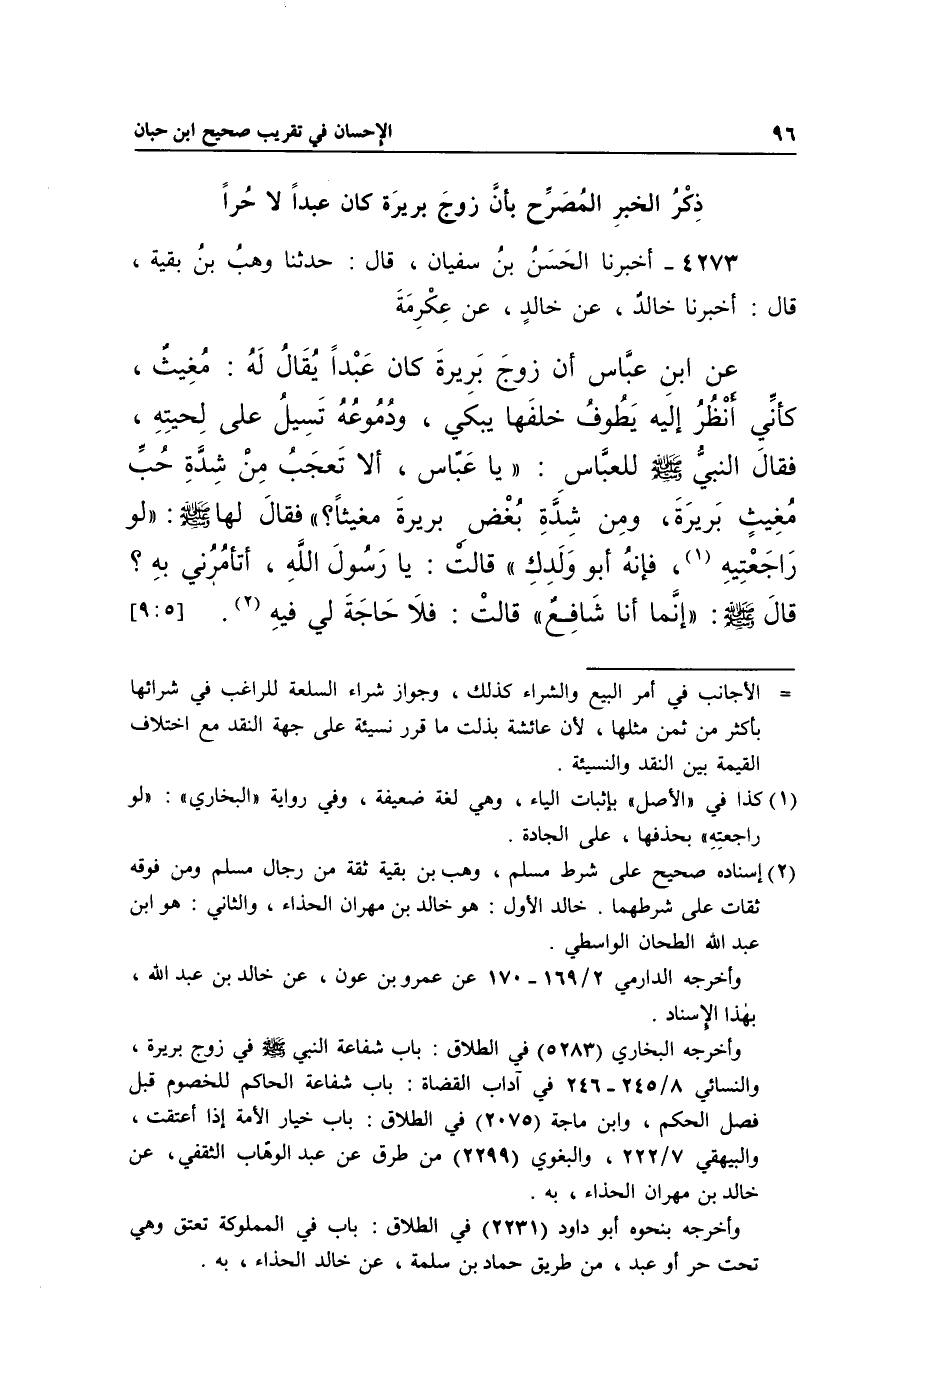 ٩٦ الإحسان في تقريب صحيح ابن حبان
ذِكْرُ الخبرِ المُصَرِّحِ بأنَّ زوجَ بريرَة كان عبداً لا حُراً
٤٢٧٣ ـ أخبرنا الحَسَنُ بنُ سفيان ، قال : حدثنا وهبُ بنُ بقية ،
قال : أخبرنا خالدٌ ، عن خالدٍ ، عن عِكْرِمَةَ
عن ابنِ عبَّاس أن زوجَ بَريرةَ كان عَبْداً يُقَالُ لَهُ : مُغيثٌ ،
كأنِّي أَنْظُرُ إليه يَطُوفُ خلفَها يبكي ، ودُمُوعُهُ تَسيلُ على لِحيتِهِ ،
فقالَ النبيُّ ﷺ للعبَّاس : « يا عَبّاس ، ألا تَعجَبُ مِنْ شِدَّةِ حُبِّ
مُغيثٍ بَريرَةَ، ومِن شِدَّةِ بُغْضِ بريرةَ مغيثاً؟» فقالَ لها ﷺ: «لو
رَاجَعْتِيهِ (١)، فإنهُ أبو وَلَدِكِ » قالتْ : يا رَسُولَ اللَّهِ ، أتأمُرُني بهِ ؟
قالَ ﷺ: «إنَّما أنا شَافِعٌ» قالتْ : فلَا حَاجَةَ لي فيهِ (٢). [٩:٥]
= الأجانب في أمر البيع والشراء كذلك ، وجواز شراء السلعة للراغب في شرائها
بأكثر من ثمن مثلها ، لأن عائشة بذلت ما قرر نسيئة على جهة النقد مع اختلاف
القيمة بين النقد والنسيئة .
(١) كذا في «الأصل» بإثبات الياء ، وهي لغة ضعيفة ، وفي رواية «البخاري» : «لو
راجعتِهِ» بحذفها ، على الجادة .
(٢) إسناده صحيح على شرط مسلم ، وهب بن بقية ثقة من رجال مسلم ومن فوقه
ثقات على شرطهما . خالد الأول : هو خالد بن مهران الحذاء ، والثاني : هو ابن
عبد الله الطحان الواسطي .
وأخرجه الدارمي ١٦٩/٢ ـ ١٧٠ عن عمرو بن عون ، عن خالد بن عبد الله ،
بهٰذا الإسناد .
وأخرجه البخاري (٥٢٨٣) في الطلاق : باب شفاعة النبي ﷺ في زوج بريرة ،
والنسائي ٢٤٥/٨ ـ ٢٤٦ في آداب القضاة : باب شفاعة الحاكم للخصوم قبل
فصل الحكم ، وابن ماجة (٢٠٧٥) في الطلاق : باب خيار الأمة إذا أعتقت ،
والبيهقي ٢٢٢/٧ ، والبغوي (٢٢٩٩) من طرق عن عبد الوهّاب الثقفي، عن
خالد بن مهران الحذاء ، به .
وأخرجه بنحوه أبو داود (٢٢٣١) في الطلاق : باب في المملوكة تعتق وهي
تحت حر أو عبد ، من طريق حماد بن سلمة ، عن خالد الحذاء ، به .